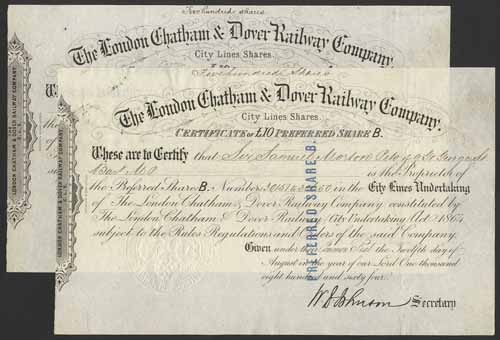 Five hundred shares
The London Chatham & Dover Railway Company.
City Lines Shares.
Five hundred Shares
The London Chatham & Dover Railway Company.
City Lines Shares.
CERTIFICATE of £10 PREFERRED SHARE B.
These are to Certify that Sir Samuel Morton Peto of
is the Proprietor of
the Preferred Share B. Numbers in the City Lines Undertaking
of The London Chatham & Dover Railway Company, constituted by
The London Chatham & Dover Railway (City Undertaking) Act 1864
subject to the Rules Regulations and Orders of the said Company.
Given under the Common Seal, the Twelfth day of
August in the year of our Lord One thousand
eight hundred and sixty four.
Secretary
PREFERRED SHARE B.
LONDON CHATHAM & DOVER RAILWAY COMPANY
LONDON CHATHAM & DOVER RAILWAY COMPANY